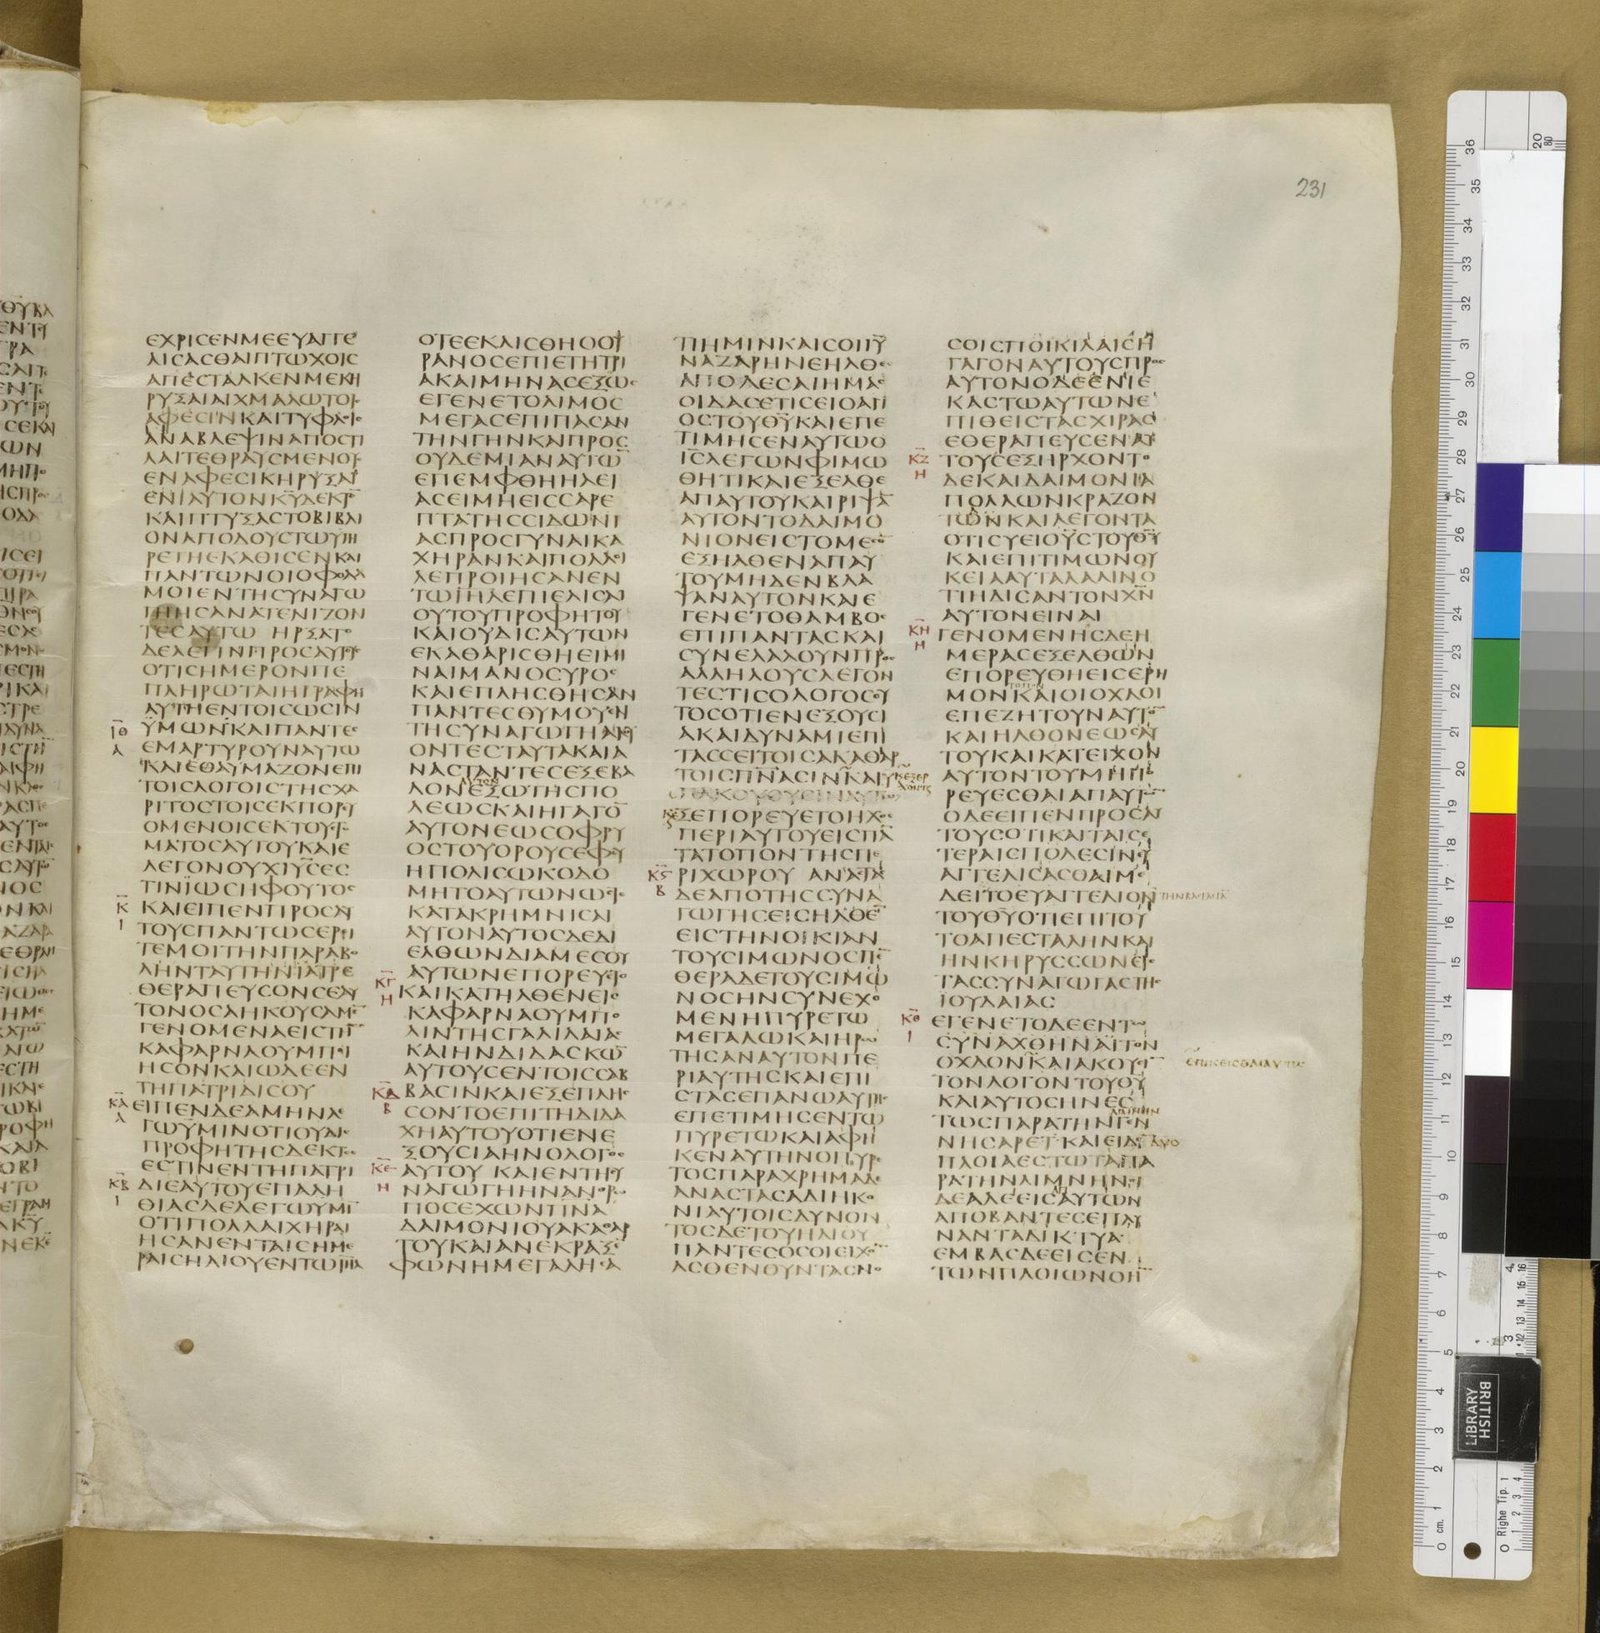 231
ΕΧΡΙCΕΝΜΕΕΥΑΓΓΕ
ΛΙCΑCΘΑΙΠΤΩΧΟΙC
ΑΠΕCΤΑΛΚΕΝΜΕΚΗ
ΡΥΞΑΙΑΙΧΜΑΛΩΤΟΙC
ΑΦΕCΙΝΚΑΙΤΥΦΛΟΙC
ΑΝΑΒΛΕΨΙΝΑΠΟCΤΙ
ΛΑΙΤΕΘΡΑΥCΜΕΝΟΥC
ΕΝΑΦΕCΙΚΗΡΥΞΑΙ
ΕΝΙΑΥΤΟΝΚΥΔΕΚΤΟ
ΚΑΙΠΤΥΞΑCΤΟΒΙΒΛΙ
ΟΝΑΠΟΔΟΥCΤΩΥΠΗ
ΡΕΤΗΕΚΑΘΙCΕΝΚΑΙ
ΠΑΝΤΩΝΟΙΟΦΘΑΛ
ΜΟΙΕΝΤΗCΥΝΑΓΩ
ΓΗΗCΑΝΑΤΕΝΙΖΟΝ
ΤΕCΑΥΤΩ ΗΡΞΑΤΟ
ΔΕΛΕΓΙΝΠΡΟCΑΥΤΟΥC
ΟΤΙCΗΜΕΡΟΝΠΕ
ΠΛΗΡΩΤΑΙΗΓΡΑΦΗ
ΑΥΤΗΕΝΤΟΙCΩCΙΝ
ΙΘ Α
ΥΜΩΝΚΑΙΠΑΝΤΕC
ΕΜΑΡΤΥΡΟΥΝΑΥΤΩ
ΚΑΙΕΘΑΥΜΑΖΟΝΕΠΙ
ΤΟΙCΛΟΓΟΙCΤΗCΧΑ
ΡΙΤΟCΤΟΙCΕΚΠΟΡΕΥ
ΟΜΕΝΟΙCΕΚΤΟΥCΤΟ
ΜΑΤΟCΑΥΤΟΥΚΑΙΕ
ΛΕΓΟΝΟΥΧΙΥCΕC
ΤΙΝΙΩCΗΦΟΥΤΟC
Κ Ι
ΚΑΙΕΙΠΕΝΠΡΟCΑΥ
ΤΟΥCΠΑΝΤΩCΕΡΕΙ
ΤΕΜΟΙΤΗΝΠΑΡΑΒΟ
ΛΗΝΤΑΥΤΗΝΙΑΤΡΕ
ΘΕΡΑΠΕΥCΟΝCΕΑΥ
ΤΟΝΟCΑΗΚΟΥCΑΜΕ
ΓΕΝΟΜΕΝΑΕΙCΤΗ
ΚΑΦΑΡΝΑΟΥΜΠΟΙ
ΗCΟΝΚΑΙΩΔΕΕΝ
ΤΗΠΑΤΡΙΔΙCΟΥ
ΚΑ Α
ΕΙΠΕΝΔΕΑΜΗΝΛΕ
ΓΩΥΜΙΝΟΤΙΟΥΔΙC
ΠΡΟΦΗΤΗCΔΕΚΤΟC
ΕCΤΙΝΕΝΤΗΠΑΤΡΙ
ΚΒ Ι
ΔΙΕΑΥΤΟΥΕΠΑΛΗ
ΘΙΑCΔΕΛΕΓΩΥΜΙ
ΟΤΙΠΟΛΛΑΙΧΗΡΑΙ
ΗCΑΝΕΝΤΑΙCΗΜΕ
ΡΑΙCΗΛΙΟΥΕΝΤΩΙΗΛ
ΟΤΕΕΚΛΙCΘΗΟΟΥ
ΡΑΝΟCΕΠΙΕΤΗΤΡΙ
ΑΚΑΙΜΗΝΑCΕΞΩC
ΕΓΕΝΕΤΟΛΙΜΟC
ΜΕΓΑCΕΠΙΠΑCΑΝ
ΤΗΝΓΗΝΚΑΙΠΡΟC
ΟΥΔΕΜΙΑΝΑΥΤΩ
ΕΠΕΜΦΘΗΗΛΕΙ
ΑCΕΙΜΗΕΙCCΑΡΕ
ΠΤΑΤΗCCΙΔΩΝΙ
ΑCΠΡΟCΓΥΝΑΙΚΑ
ΧΗΡΑΝΚΑΙΠΟΛΛΟΙ
ΛΕΠΡΟΙΗCΑΝΕΝ
ΤΩΙΗΛΕΠΙΕΛΙCΑΙ
ΟΥΤΟΥΠΡΟΦΗΤΟΥ
ΚΑΙΟΥΔΙCΑΥΤΩΝ
ΕΚΑΘΑΡΙCΘΗΕΙΜΙ
ΝΑΙΜΑΝΟCΥΡΟC
ΚΑΙΕΠΛΗCΘΗCΑΝ
ΠΑΝΤΕCΘΥΜΟΥΕΝ
ΤΗCΥΝΑΓΩΓΗΑΚΟΥ
ΟΝΤΕCΤΑΥΤΑΚΑΙΑ
ΝΑCΤΑΝΤΕCΕΞΕΒΑ
ΑΥΤΟΝ
ΛΟΝΕΞΩΤΗCΠΟ
ΛΕΩCΚΑΙΗΓΑΓΟ
ΑΥΤΟΝΕΩCΟΦΡΥ
ΟCΤΟΥΟΡΟΥCΕΦΟΥ
ΗΠΟΛΙCΩΚΟΔΟ
ΜΗΤΟΑΥΤΩΝΩCΤΕ
ΚΑΤΑΚΡΗΜΝΙCΑΙ
ΑΥΤΟΝΑΥΤΟCΔΕΔΙ
ΕΛΘΩΝΔΙΑΜΕCΟΥ
ΑΥΤΩΝΕΠΟΡΕΥΕΤΟ
ΚΓ Η
ΚΑΙΚΑΤΗΛΘΕΝΕΙC
ΚΑΦΑΡΝΑΟΥΜΠΟ
ΛΙΝΤΗCΓΑΛΙΛΑΙΑC
ΚΑΙΗΝΔΙΔΑCΚΩ
ΑΥΤΟΥCΕΝΤΟΙCCΑΒ
ΚΔ Β
ΒΑCΙΝΚΑΙΕΞΕΠΛΗC
CΟΝΤΟΕΠΙΤΗΔΙΔΑ
ΧΗΑΥΤΟΥΟΤΙΕΝΕ
ΞΟΥCΙΑΗΝΟΛΟΓΟC
ΚΕ Η
ΑΥΤΟΥ ΚΑΙΕΝΤΗCΥ
ΝΑΓΩΓΗΗΝΑΝΘΡΩ
ΠΟCΕΧΩΝΠΝΑ
ΔΑΙΜΟΝΙΟΥΑΚΑΘΑΡ
ΤΟΥΚΑΙΑΝΕΚΡΑΞΕ
ΦΩΝΗΜΕΓΑΛΗΕΑ
ΤΙΗΜΙΝΚΑΙCΟΙΙΥ
ΝΑΖΑΡΗΝΕΗΛΘΕC
ΑΠΟΛΕCΑΙΗΜΑC
ΟΙΔΑCΕΤΙCΕΙΟΑΓΙ
ΟCΤΟΥΘΥΚΑΙΕΠΕ
ΤΙΜΗCΕΝΑΥΤΩΟ
ΙCΛΕΓΩΝΦΙΜΩ
ΘΗΤΙΚΑΙΕΞΕΛΘΕ
ΑΠΑΥΤΟΥΚΑΙΡΙΨΑ
ΑΥΤΟΝΤΟΔΑΙΜΟ
ΝΙΟΝΕΙCΤΟΜΕCΟ
ΕΞΗΛΘΕΝΑΠΑΥ
ΤΟΥΜΗΔΕΝΒΛΑ
ΨΑΝΑΥΤΟΝΚΑΙΕ
ΓΕΝΕΤΟΘΑΜΒΟC
ΕΠΙΠΑΝΤΑCΚΑΙ
CΥΝΕΛΑΛΟΥΝΠΡΟC
ΑΛΛΗΛΟΥCΛΕΓΟΝ
ΤΕCΤΙCΟΛΟΓΟCΟΥ
ΤΟCΟΤΙΕΝΕΞΟΥCΙ
ΑΚΑΙΔΥΝΑΜΙΕΠΙ
ΤΑCCΕΙΤΟΙCΑΚΑΘΑΡ
ΤΟΙCΠΝΑCΙΝΚΑΙ
ΥΠΑΚΟΥΟΥCΙΝΑΥΤΩ
ΚΕ
ΞΕΠΟΡΕΥΕΤΟΗΧΟC
ΠΕΡΙΑΥΤΟΥΕΙCΠΑ
ΤΑΤΟΠΟΝΤΗCΠΕ
ΚϚ Β
ΡΙΧΩΡΟΥ ΑΝΑCΤΑC
ΔΕΑΠΟΤΗCCΥΝΑ
ΓΩΓΗCΕΙCΗΛΘΕ
ΕΙCΤΗΝΟΙΚΙΑΝ
ΤΟΥCΙΜΩΝΟCΠΕ
ΘΕΡΑΔΕΤΟΥCΙΜΩ
ΝΟCΗΝCΥΝΕΧΟ
ΜΕΝΗΠΥΡΕΤΩ
ΜΕΓΑΛΩΚΑΙΗΡΩ
ΤΗCΑΝΑΥΤΟΝΠΕ
ΡΙΑΥΤΗCΚΑΙΕΠΙ
CΤΑCΕΠΑΝΩΑΥΤΗC
ΕΠΕΤΙΜΗCΕΝΤΩ
ΠΥΡΕΤΩΚΑΙΑΦΗ
ΚΕΝΑΥΤΗΝΟΠΥΡΕ
ΤΟCΠΑΡΑΧΡΗΜΑΔΕ
ΑΝΑCΤΑCΑΔΙΗΚΟ
ΝΙΑΥΤΟΙCΔΥΝΟΝ
ΤΟCΔΕΤΟΥΗΛΙΟΥ
ΠΑΝΤΕCΟCΟΙΕΙΧΟΝ
ΑCΘΕΝΟΥΝΤΑCΝΟ
CΟΙCΠΟΙΚΙΛΑΙCΗ
ΓΑΓΟΝΑΥΤΟΥCΠΡΟC
ΑΥΤΟΝΟΔΕΕΝΙΕ
ΚΑCΤΩΑΥΤΩΝΕ
ΠΙΘΕΙCΤΑCΧΙΡΑC
ΕΘΕΡΑΠΕΥCΕΝΑΥ
ΚΖ Η
ΤΟΥCΕΞΗΡΧΟΝΤΟ
ΔΕΚΑΙΔΑΙΜΟΝΙΑ
ΠΟΛΛΩΝΚΡΑΖΟΝ
ΤΩΝΚΑΙΛΕΓΟΝΤΑ
ΟΤΙCΥΕΙΟΥCΤΟΥΘΥ
ΚΑΙΕΠΙΤΙΜΩΝΟΥ
ΚΕΙΑΑΥΤΑΛΑΛΙΝΟ
ΤΙΗΔΙCΑΝΤΟΝΧΝ
ΑΥΤΟΝΕΙΝΑΙ
ΚΗ Η
ΓΕΝΟΜΕΝΗCΔΕΗ
ΜΕΡΑCΕΞΕΛΘΩΝ
ΕΠΟΡΕΥΘΗΕΙCΕΡΗ
ΤΟΠΟΝ
ΜΟΝΚΑΙΟΙΟΧΛΟΙ
ΕΠΕΖΗΤΟΥΝΑΥΤΟ
ΚΑΙΗΛΘΟΝΕΩCΑΥ
ΤΟΥΚΑΙΚΑΤΕΙΧΟΝ
ΑΥΤΟΝΤΟΥΜΗΠΟ
ΡΕΥΕCΘΑΙΑΠΑΥΤΩ
ΟΔΕΕΙΠΕΝΠΡΟCΑΥ
ΤΟΥCΟΤΙΚΑΙΤΑΙCΕ
ΤΕΡΑΙCΠΟΛΕCΙΝΕΥ
ΑΓΓΕΛΙCΑCΘΑΙΜΕ
ΔΕΙΤΟΕΥΑΓΓΕΛΙΟΝ
ΤΗΝΒΑCΙΛΕΙΑ
ΤΟΥΘΥΟΤΙΕΠΙΤΟΥ
ΤΟΑΠΕCΤΑΛΗΝΚΑΙ
ΗΝΚΗΡΥCCΩΝΕΙC
ΤΑCCΥΝΑΓΩΓΑCΤΗC
ΙΟΥΔΑΙΑC
ΚΘ Ι
ΕΓΕΝΕΤΟΔΕΕΝΤΩ
CΥΝΑΧΘΗΝΑΙΤΟΝ
ΟΧΛΟΝΚΑΙΑΚΟΥΕΙ
ΕΠΙΚΕΙCΘΑΙΑΥΤΩ
ΤΟΝΛΟΓΟΝΤΟΥΘΥ
ΚΑΙΑΥΤΟCΗΝΕC
ΤΩCΠΑΡΑΤΗΝΓΕΝ
ΛΙΜΝΗΝ
ΝΗCΑΡΕΤ ΚΑΙΕΙΔΕ
ΔΥΟ
ΠΛΟΙΑΕCΤΩΤΑΠΑ
ΡΑΤΗΝΛΙΜΝΗΝΟΙ
ΔΕΑΛΕΕΙCΑΥΤΩΝ
ΑΠΟΒΑΝΤΕCΕΠΛΥ
ΝΑΝΤΑΔΙΚΤΥΑ
ΕΜΒΑCΔΕΕΙCΕΝ
ΤΩΝΠΛΟΙΩΝΟΗ
BRITISH
LIBRARY
Righe Tip. 1
0 cm.